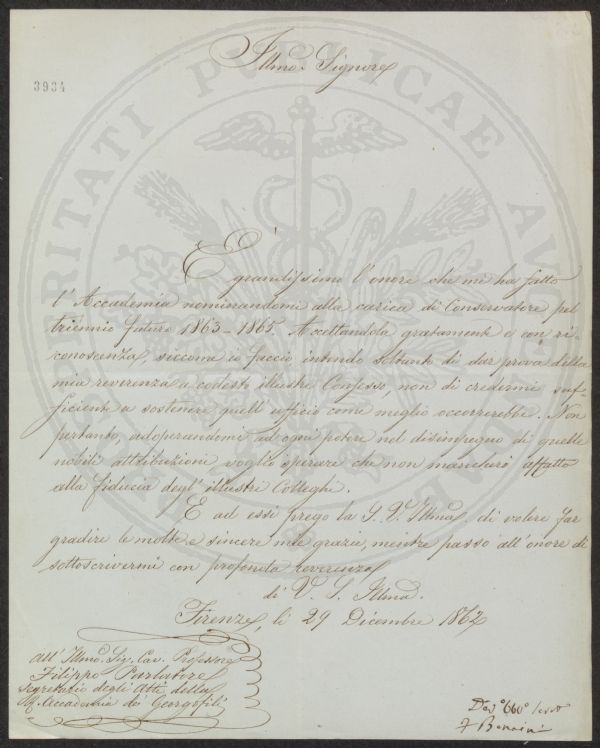 3934
Illmo. Signore
È grandissimo l'onore che mi ha fatto
l'Accademia nominandomi alla carica di Conservatore pel
triennio futuro 1863-1865. Accettandola gratamente e con ri-
conoscenza, siccome io faccio intendo soltanto di dar prova della
mia reverenza a codesto illustre Consesso, non di credermi suf-
ficiente a sostenere quell'ufficio come meglio occorrerebbe. Non
pertanto, adoperandomi ad ogni potere nel disimpegno di quelle
nobili attribuzioni voglio sperare che non mancherò affatto
alla fiducia degl'illustri Colleghi.
E ad essi prego la S. V. Illma. di volere far
gradire le molte e sincere mie grazie, mentre passo all'onore di
sottoscrivermi con profonda reverenza
di V. S. Illma.
Firenze, li 29 Dicembre 1862
All' Illmo. Sig. Cav. Professore
Filippo Parlatore
Segretario degli Atti della
R. Accademia dei Georgofili
PROSPERITATI PUBLICAE AUGENDAE